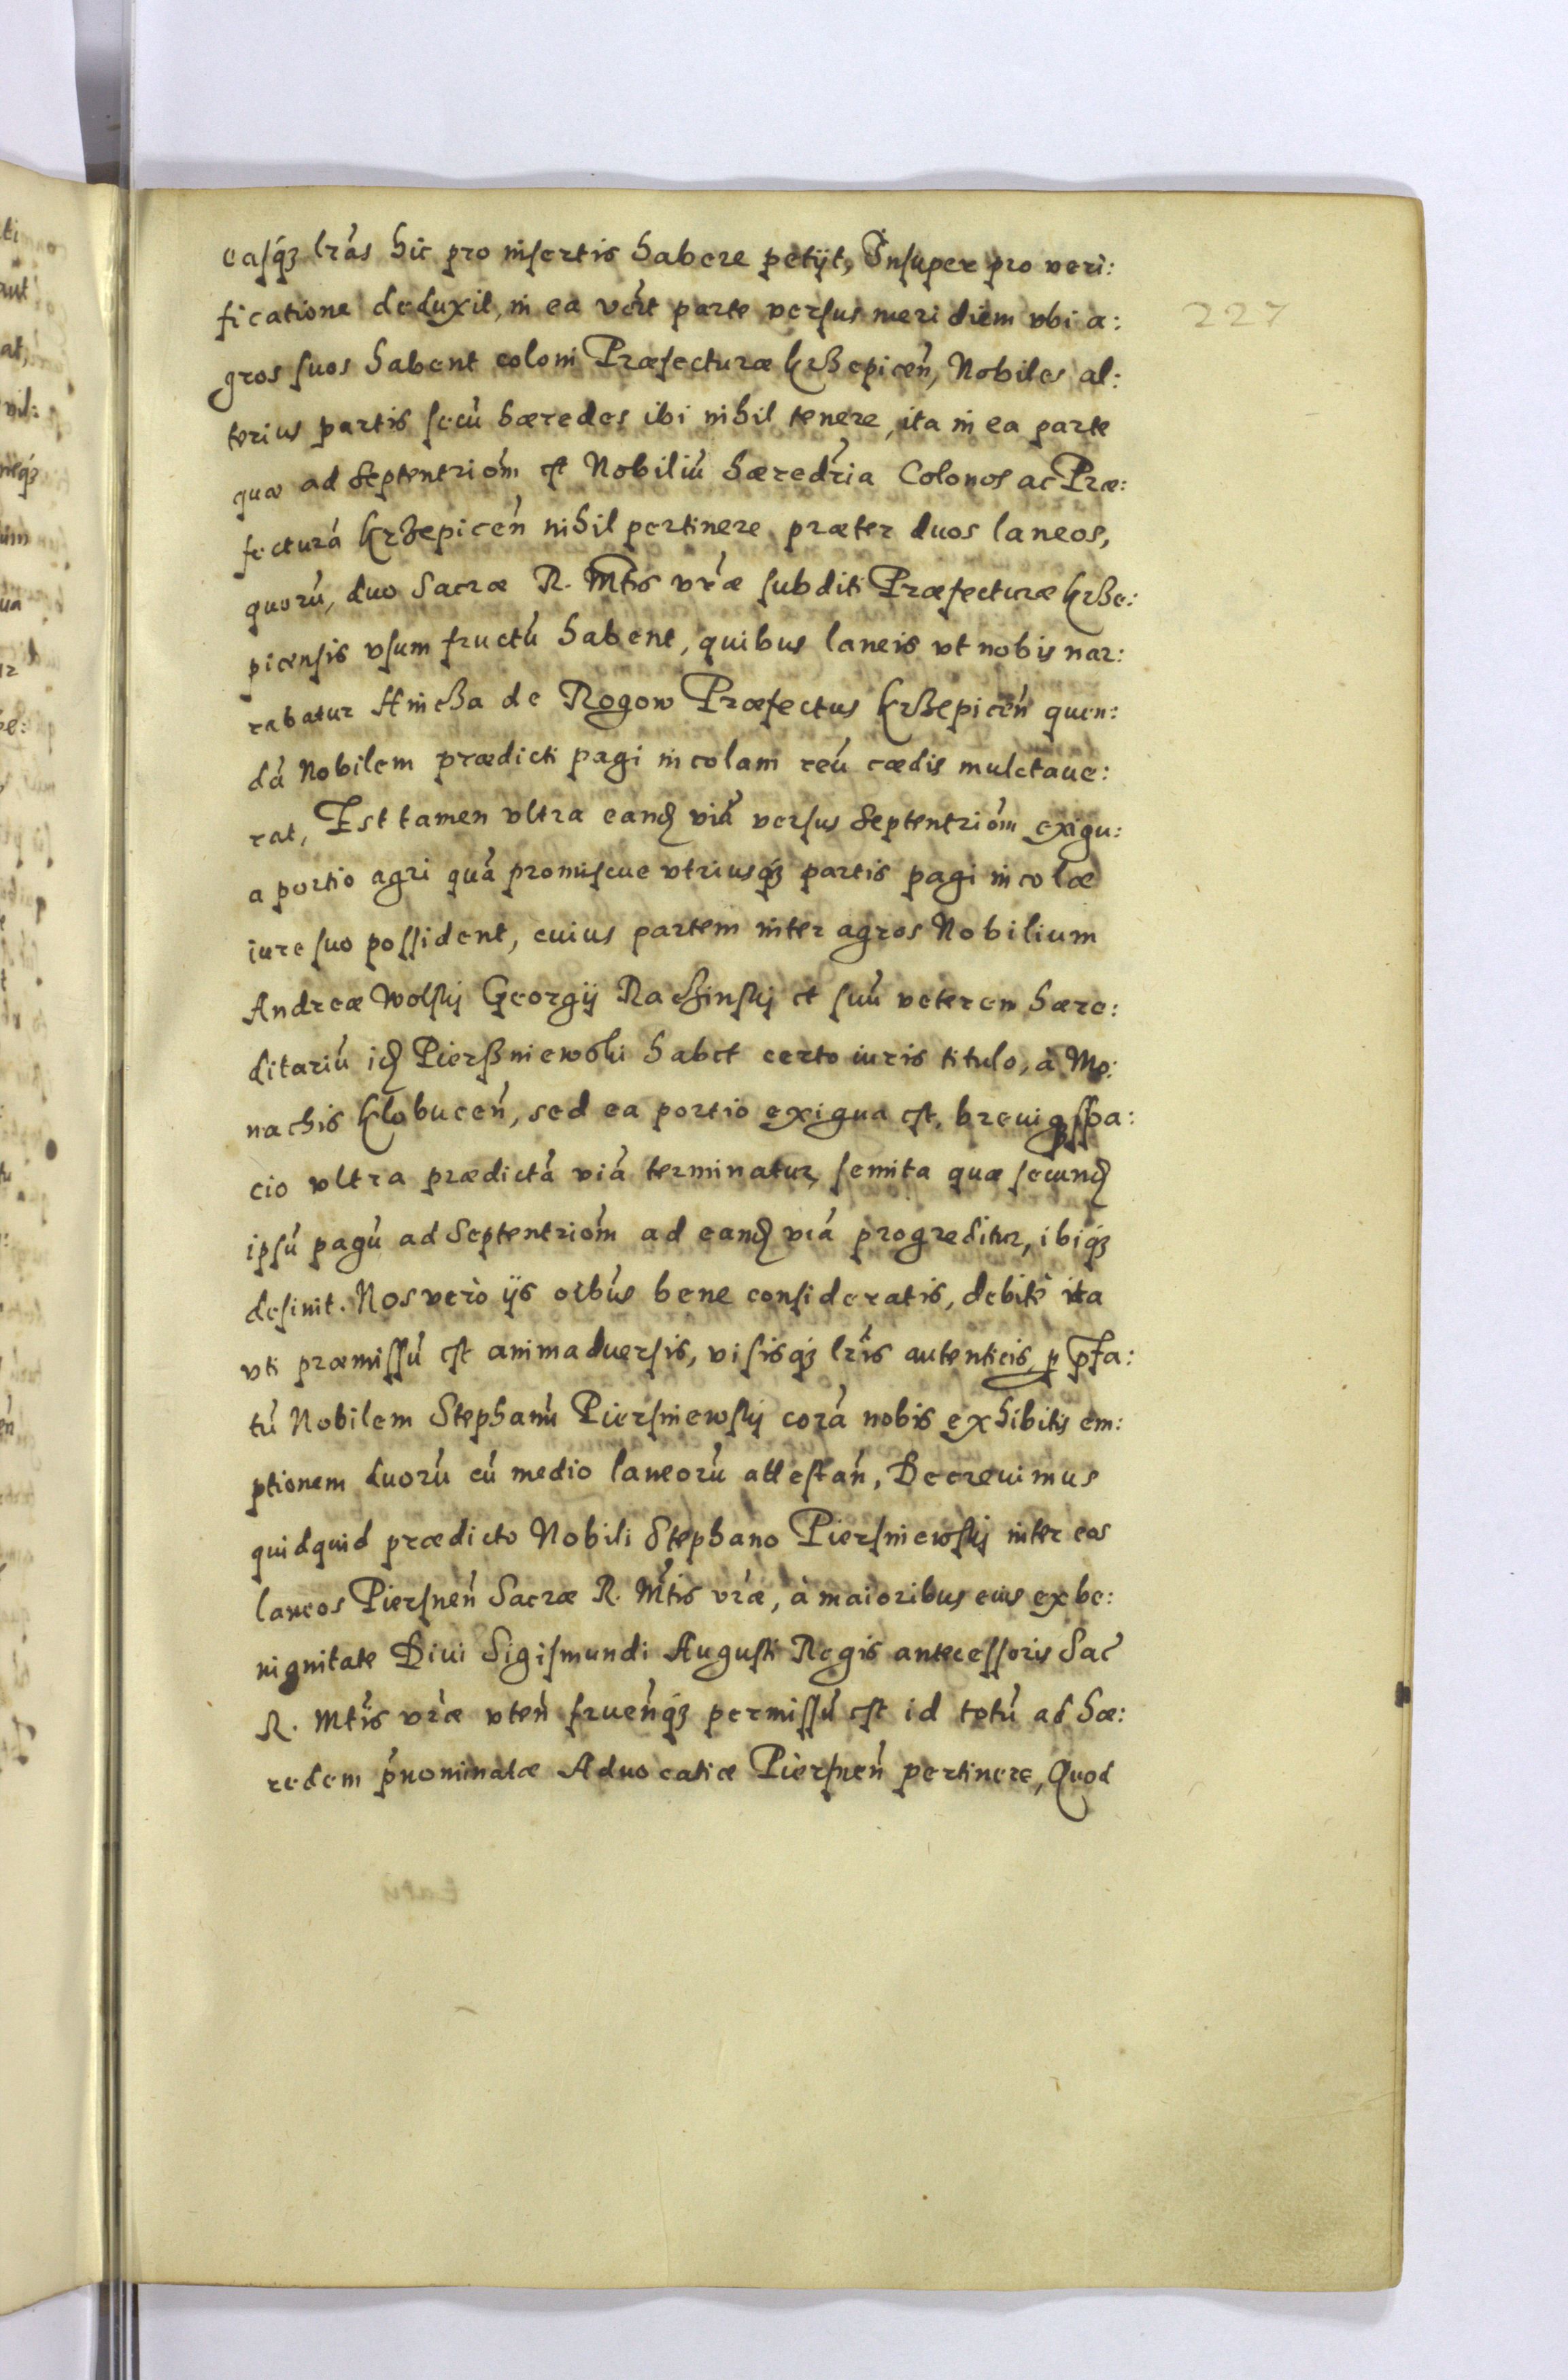 easq́ꝫ lr̃as hic pro insertis habere petijt, Insuper pro veri:
ficatione deduxit, in ea vert parte versus meridiem vbi a:
gros suos habent coloni Præfecturæ Krzepiceń, Nobiles al:
terius partis secú hæredes ibi nihil tenere, ita in ea parte
quæ ad Septentrióm est Nobiliú hæredr̃ia Colonos ac Præ:
fecturá Krzepiceń nihil pertinere præter duos laneos,
quorú, duo Sacræ R. Mtis vr̃æ subditi Præfecturæ Krze:
picensis vsum fructú habent, quibus laneis vt nobis nar:
rabatur Hincza de Rogow Præfectus Krzepiceń quen:
dá Nobilem prædicti pagi incolam reú cædis mulctaue:
rat, Est tamen vltra eandꝫ viá versus Septentrióm exigu:
a portio agri quá promiscue vtriusq́ꝫ partis pagi incolæ
iure suo possident, cuius partem inter agros Nobilium
Andreæ Wolskj Georgij Raczinskj et suú veterem hære:
ditariú idꝫ Pierzsniewski habet certo iuris titulo, à Mo:
nachis Klobuceń, sed ea portio exigua est, breuiqꝫ spa:
cio vltra prædictá viá terminatur, semita quæ secundꝫ
ipsú pagú ad Septentrióm ad eandꝫ viá progreditur, ibiq́ꝫ
desinit. Nos verò ijs oĩbus bene consideratis, debitè ita
vti præmissú est animaduersis, visisq́ꝫ lr̃is autenticis, ꝑ p̃fa:
tú Nobilem Stephanú Piersniewskj corá nobis exhibitis em:
ptionem duorú cú medio laneorú attestań, Decreuimus
quidquid prædicto Nobili Stephano Piersniewskj inter eos
laneos Piersneń Sacræ R. Mtis vr̃æ, à maioribus eius ex be:
nignitate Diui Sigismundi Augusti Regis antecessoris Sac̃
R. Mtis vr̃æ vteń frueńq́ꝫ permissú est id totú ad hæ:
redem p̃nominatæ Aduocatiæ Piersneń pertinere, Quod
227